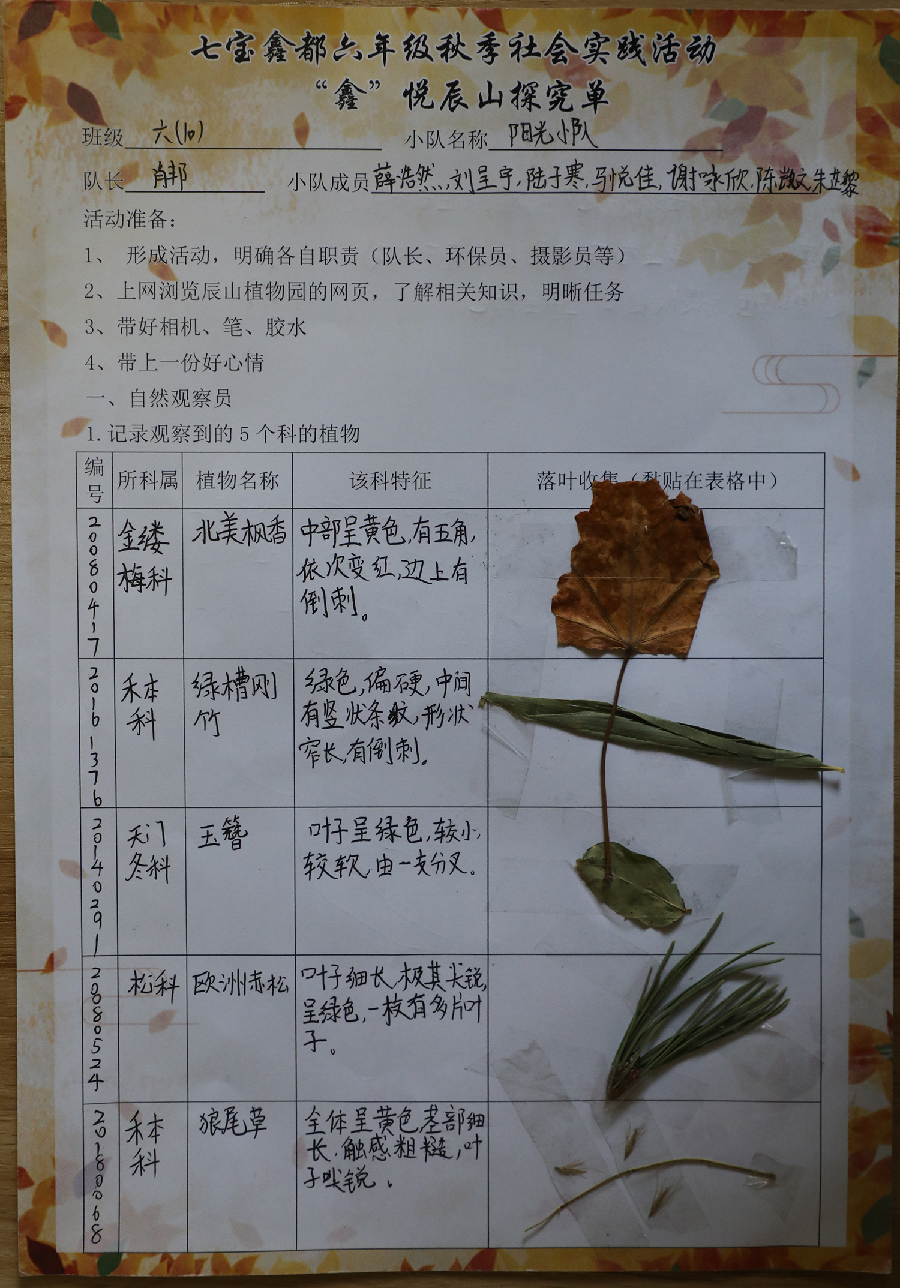 七宝鑫都六年级秋季社会实践活动
“鑫”悦辰山探究单
班级 六(10) 小队名称 阳光小队
队长 肖邦 小队成员 薛浩然、刘呈宇、陆子寒、马悦佳、谢咏欣、陈凯文、朱芷黎
活动准备：
1、 形成活动，明确各自职责（队长、环保员、摄影员等）
2、上网浏览辰山植物园的网页，了解相关知识，明晰任务
3、带好相机、笔、胶水
4、带上一份好心情
一、自然观察员
1.记录观察到的 5 个科的植物
编号 所科属 植物名称 该科特征 落叶收集（黏贴在表格中）
20080417
金缕
梅科
北美枫香
中部呈黄色,有五角,
依次变红,边上有
倒刺。
20161376
禾本
科
绿槽刚
竹
绿色,偏硬,中间
有竖状条纹,形状
窄长,有倒刺。
20140291
天门
冬科
玉簪
叶子呈绿色,较小,
较软,由一支分叉。
20080524
松科
欧洲赤松
叶子细长,极其尖锐,
呈绿色,一枝有多片叶
子。
禾本
科
狼尾草
全体呈黄色,茎部细
长,触感粗糙,叶
子尖锐.